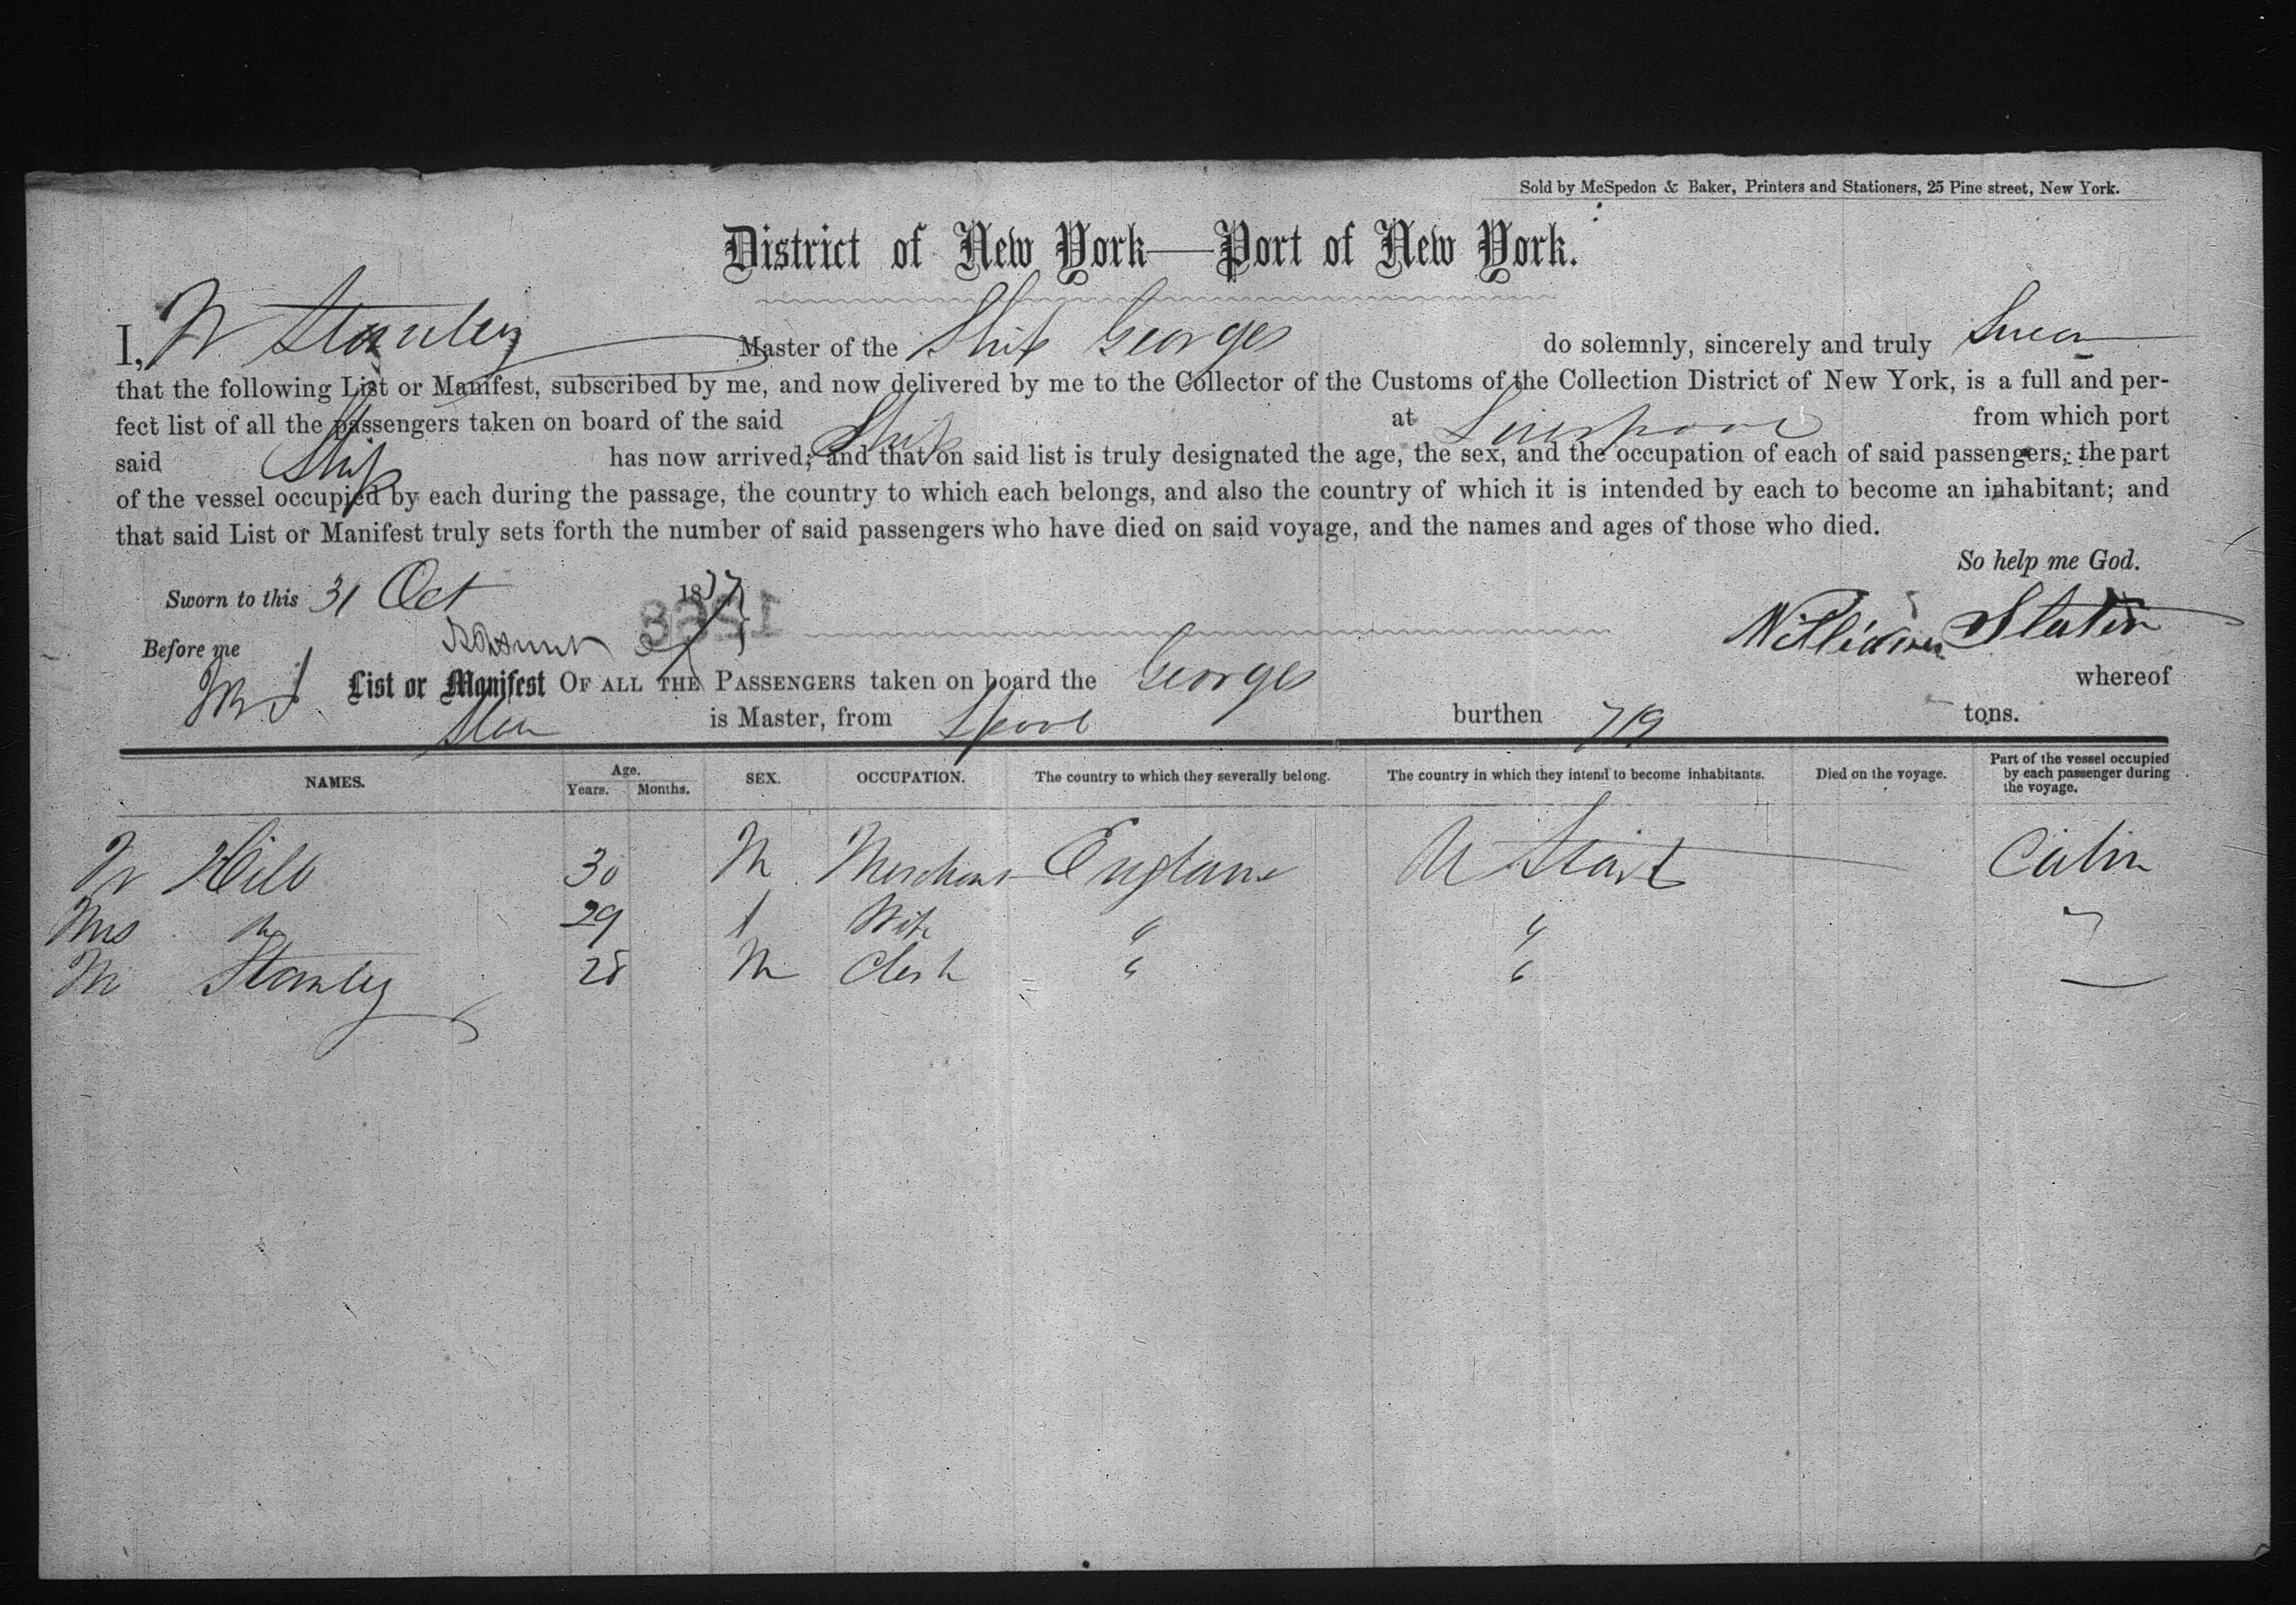 Sold by McSpedon & Baker, Printers and Stationers, 25 Pine street, New York.
District of New York—Port of New York.
I, W Stanley Master of the Ship Georges do solemnly, sincerely and truly Swear
that the following List or Manifest, subscribed by me, and now delivered by me to the Collector of the Customs of the Collection District of New York, is a full and per-
fect list of all the passengers taken on board of the said Ship at Liverpool from which port
said Ship has now arrived; and that on said list is truly designated the age, the sex, and the occupation of each of said passengers, the part
of the vessel occupied by each during the passage, the country to which each belongs, and also the country of which it is intended by each to become an inhabitant; and
that said List or Manifest truly sets forth the number of said passengers who have died on said voyage, and the names and ages of those who died.
So help me God.
Sworn to this 31 Oct 1857
Before me William
List or Manifest OF ALL THE PASSENGERS taken on board the Georges whereof
is Master, from Lpool burthen 719 tons.
NAMES. Age. Years. Months. SEX. OCCUPATION. The country to which they severally belong. The country in which they intend to become inhabitants. Died on the voyage. Part of the vessel occupied by each passenger during the voyage.
Hill 30 M Merchant England U States Cabin
Mrs 29 f Wife " "
M Stanley 28 M Clerk " "